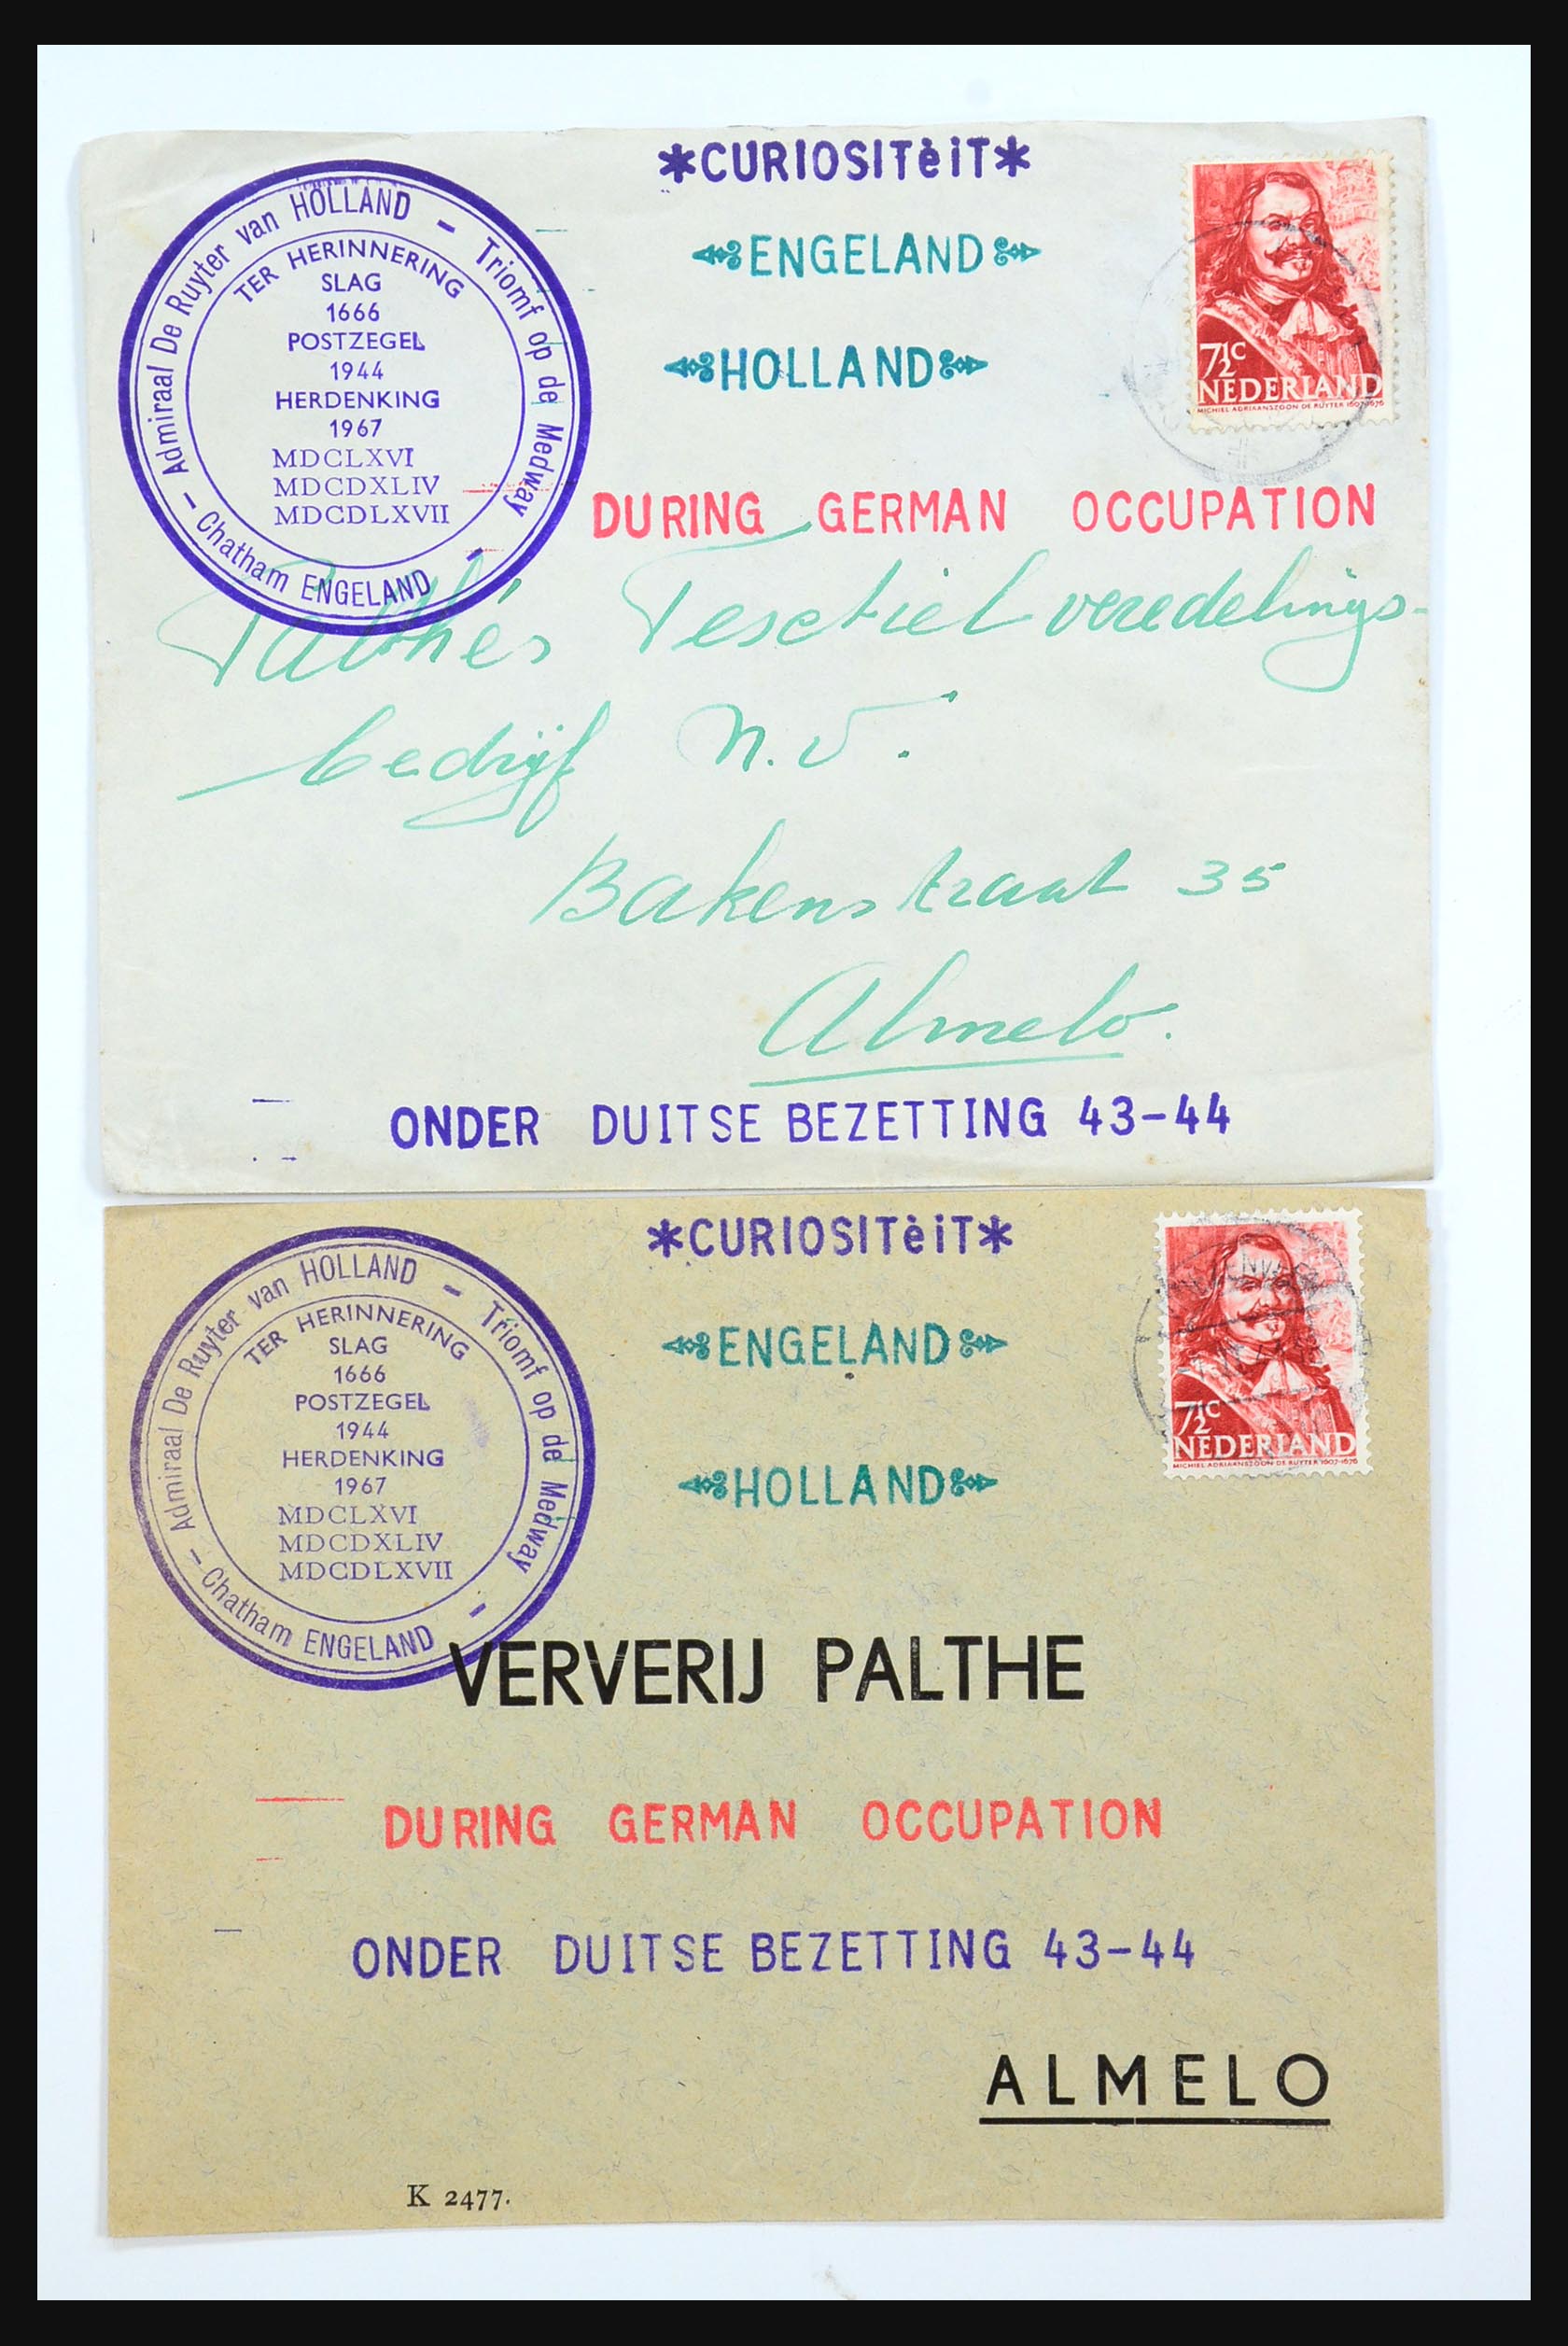 *CURIOSITèiT*
ENGELAND
HOLLAND
Admiraal De Ruyter van HOLLAND – Triomf op de Medway – Chatham ENGELAND –
TER HERINNERING
SLAG
1666
POSTZEGEL
1944
HERDENKING
1967
MDCLXVI
MDCDXLIV
MDCDLXVII
7½c
NEDERLAND
MICHIEL ADRIAANSZOON DE RUYTER 1607-1676
DURING GERMAN OCCUPATION
Palthés Textielveredelings-
bedrijf N.V.
Bakenstraat 35
Almelo.
ONDER DUITSE BEZETTING 43-44
*CURIOSITèiT*
ENGELAND
HOLLAND
Admiraal De Ruyter van HOLLAND – Triomf op de Medway – Chatham ENGELAND –
TER HERINNERING
SLAG
1666
POSTZEGEL
1944
HERDENKING
1967
MDCLXVI
MDCDXLIV
MDCDLXVII
7½c
NEDERLAND
MICHIEL ADRIAANSZOON DE RUYTER 1607-1676
VERVERIJ PALTHE
DURING GERMAN OCCUPATION
ONDER DUITSE BEZETTING 43-44
ALMELO
K 2477.